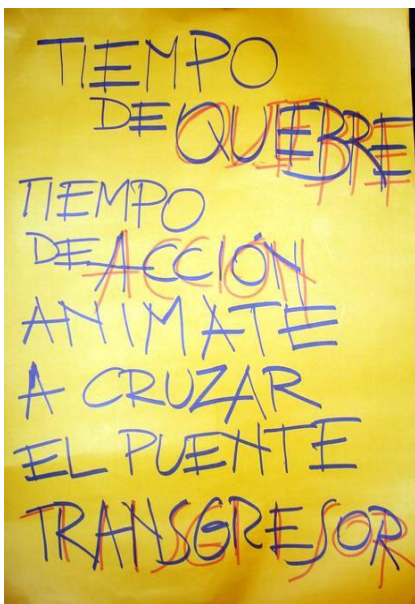 TIEMPO
DE QUIEBRE
TIEMPO
DE ACCIÓN
ANIMATE
A CRUZAR
EL PUENTE
TRANSGRESOR